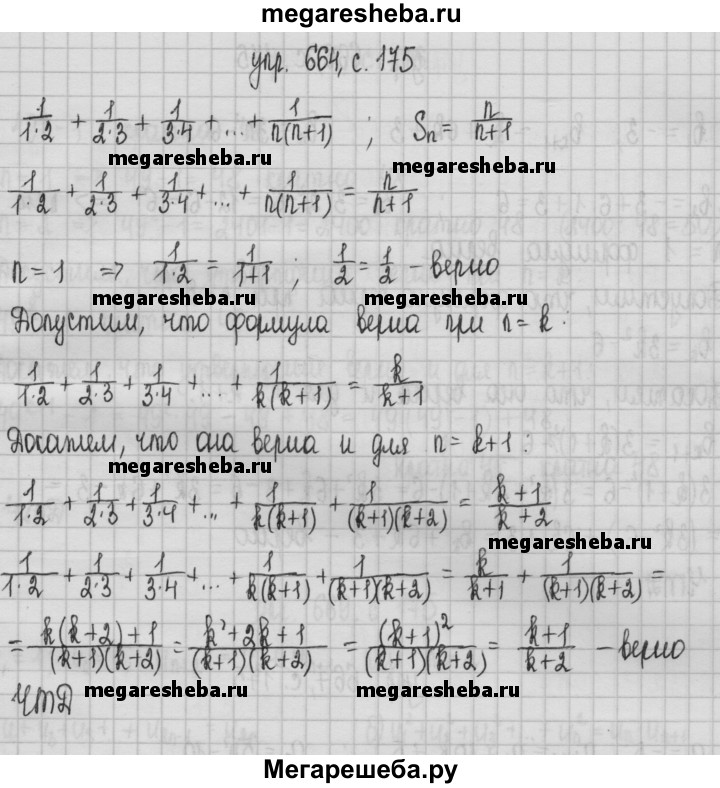 megaresheba.ru
упр. 664, с. 175
1/(1·2) + 1/(2·3) + 1/(3·4) + ... + 1/(n(n+1)) ; Sₙ = n/(n+1)
megaresheba.ru megaresheba.ru
1/(1·2) + 1/(2·3) + 1/(3·4) + ... + 1/(n(n+1)) = n/(n+1)
n = 1 ⇒ 1/(1·2) = 1/(1+1) ; 1/2 = 1/2 – верно
megaresheba.ru megaresheba.ru
Допустим, что формула верна при n = k :
1/(1·2) + 1/(2·3) + 1/(3·4) + ... + 1/(k(k+1)) = k/(k+1)
Докажем, что она верна и для n = k+1 :
megaresheba.ru
1/(1·2) + 1/(2·3) + 1/(3·4) + ... + 1/(k(k+1)) + 1/((k+1)(k+2)) = (k+1)/(k+2)
megaresheba.ru
1/(1·2) + 1/(2·3) + 1/(3·4) + ... + 1/(k(k+1)) + 1/((k+1)(k+2)) = k/(k+1) + 1/((k+1)(k+2)) =
= (k(k+2)+1)/((k+1)(k+2)) = (k²+2k+1)/((k+1)(k+2)) = (k+1)²/((k+1)(k+2)) = (k+1)/(k+2) – верно
ЧТД megaresheba.ru megaresheba.ru
Мегарешеба.ру